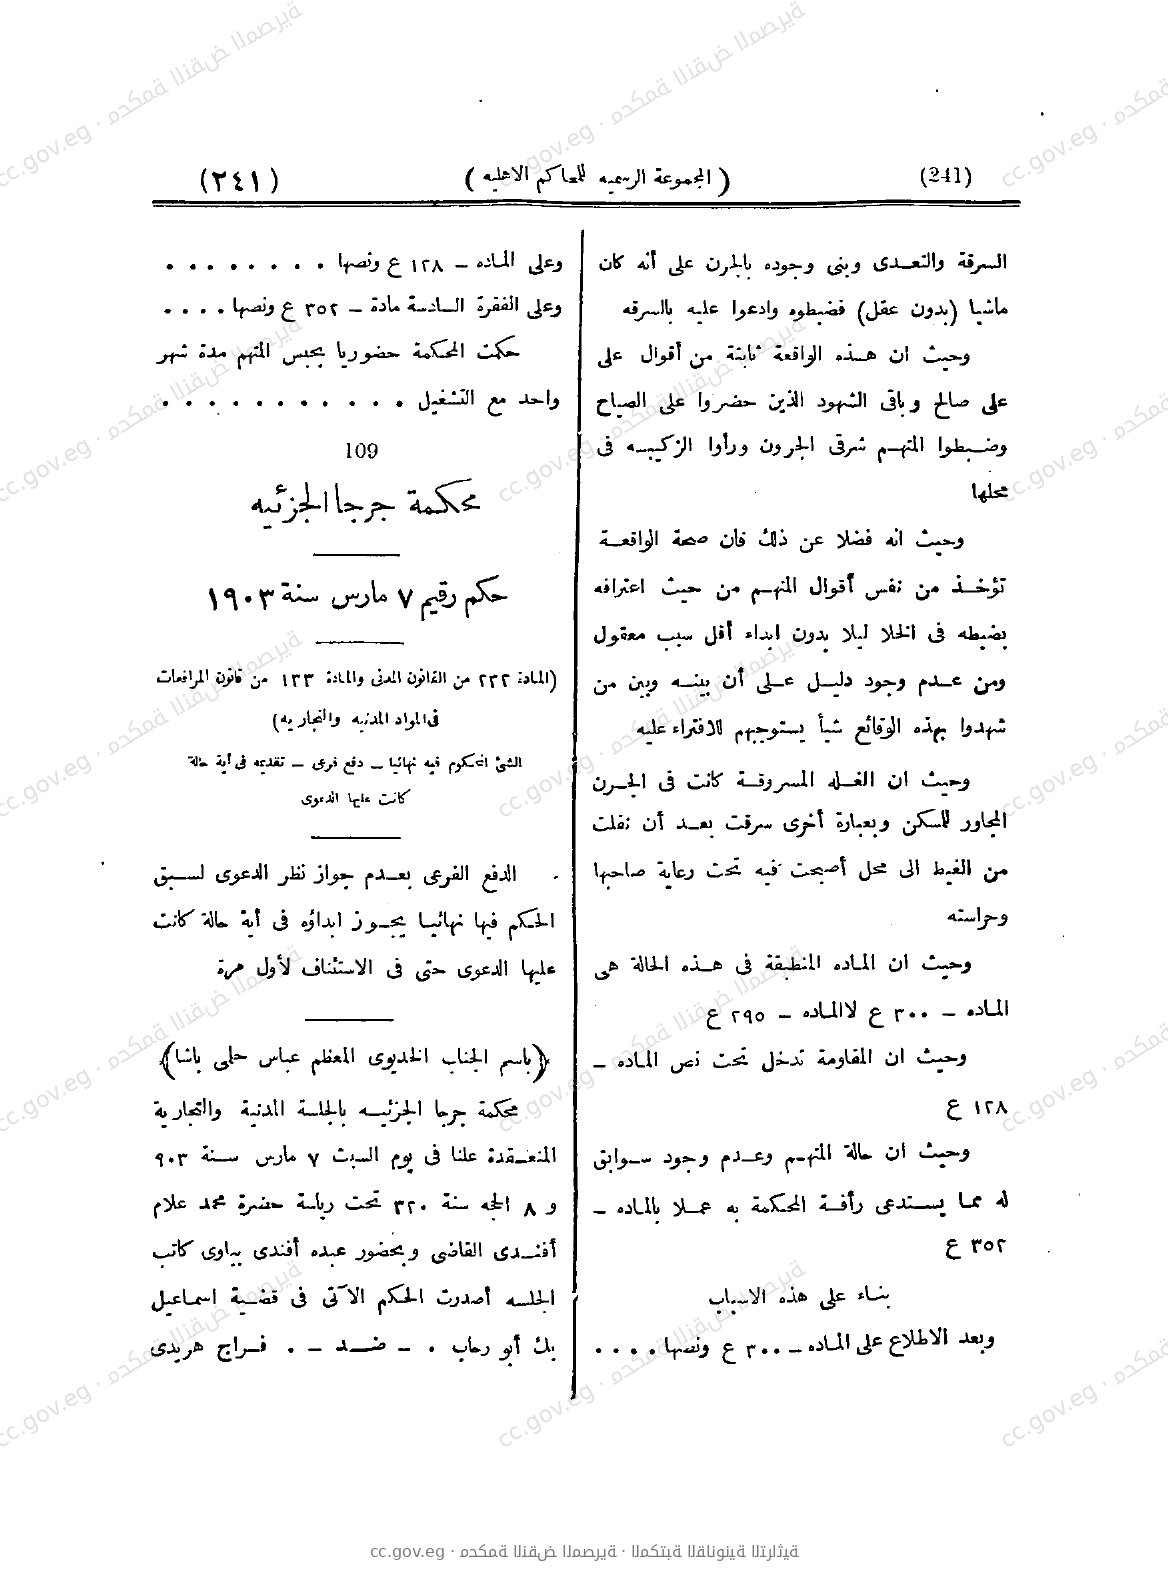 (241) (المجموعة الرسمية للمحاكم الاهليه) (٢٤١)
السرقة والتعدى وبنى وجوده بالجرن على أنه كان
ماشيا (بدون عقل) فضبطوه وادعوا عليه بالسرقه
وحيث ان هذه الواقعة ثابتة من أقوال على
على صالح وباقى الشهود الذين حضروا على الصياح
وضبطوا المتهم شرقى الجرون ورأوا الزكيبه فى
محلها
وحيث انه فضلا عن ذلك فان صحة الواقعة
تؤخذ من نفس أقوال المتهم من حيث اعترافه
بضبطه فى الخلا ليلا بدون ابداء أقل سبب معقول
ومن عدم وجود دليل على أن بينه وبين من
شهدوا بهذه الوقائع شيأ يستوجبهم للافتراء عليه
وحيث ان الغله المسروقة كانت فى الجرن
المجاور للسكن وبعبارة أخرى سرقت بعد أن نقلت
من الغيط الى محل أصبحت فيه تحت رعاية صاحبها
وحراسته
وحيث ان الماده المنطبقة فى هذه الحالة هى
الماده – ٣٠٠ ع لاالماده – ٢٩٥ ع
وحيث ان المقاومة تدخل تحت نص الماده –
١٢٨ ع
وحيث ان حالة المتهم وعدم وجود سوابق
له مما يستدعى رأفة المحكمة به عملا بالماده –
٣٥٢ ع
بناء على هذه الاسباب
وبعد الاطلاع على الماده – ٣٠٠ ع ونصها . . . .
وعلى الماده – ١٢٨ ع ونصها . . . . . . . .
وعلى الفقرة السادسة مادة – ٣٥٢ ع ونصها . . . .
حكمت المحكمة حضوريا بحبس المتهم مدة شهر
واحد مع التشغيل . . . . . . . . . . .
109
محكمة جرجا الجزئيه
حكم رقيم ٧ مارس سنة ١٩٠٣
(المادة ٢٣٢ من القانون المدنى والمادة ١٣٣ من قانون المرافعات
فى المواد المدنيه والتجاريه)
الشئ المحكوم فيه نهائيا – دفع فرعى – تقديمه فى أية حالة
كانت عليها الدعوى
الدفع الفرعى بعدم جواز نظر الدعوى لسبق
الحكم فيها نهائيا يجوز ابداؤه فى أية حالة كانت
عليها الدعوى حتى فى الاستئناف لأول مرة
(باسم الجناب الخديوى المعظم عباس حلمى باشا)
محكمة جرجا الجزئيه بالجلسة المدنية والتجارية
المنعقدة علنا فى يوم السبت ٧ مارس سنة ٩٠٣
و ٨ الحجه سنة ٣٢٠ تحت رياسة حضرة محمد علام
أفندى القاضى وبحضور عبده أفندى بباوى كاتب
الجلسه أصدرت الحكم الآتى فى قضية اسماعيل
بك أبو رحاب . – ضد – . فراج هريدى
cc.gov.eg · محكمة النقض المصرية · المكتبة القانونية التراثية